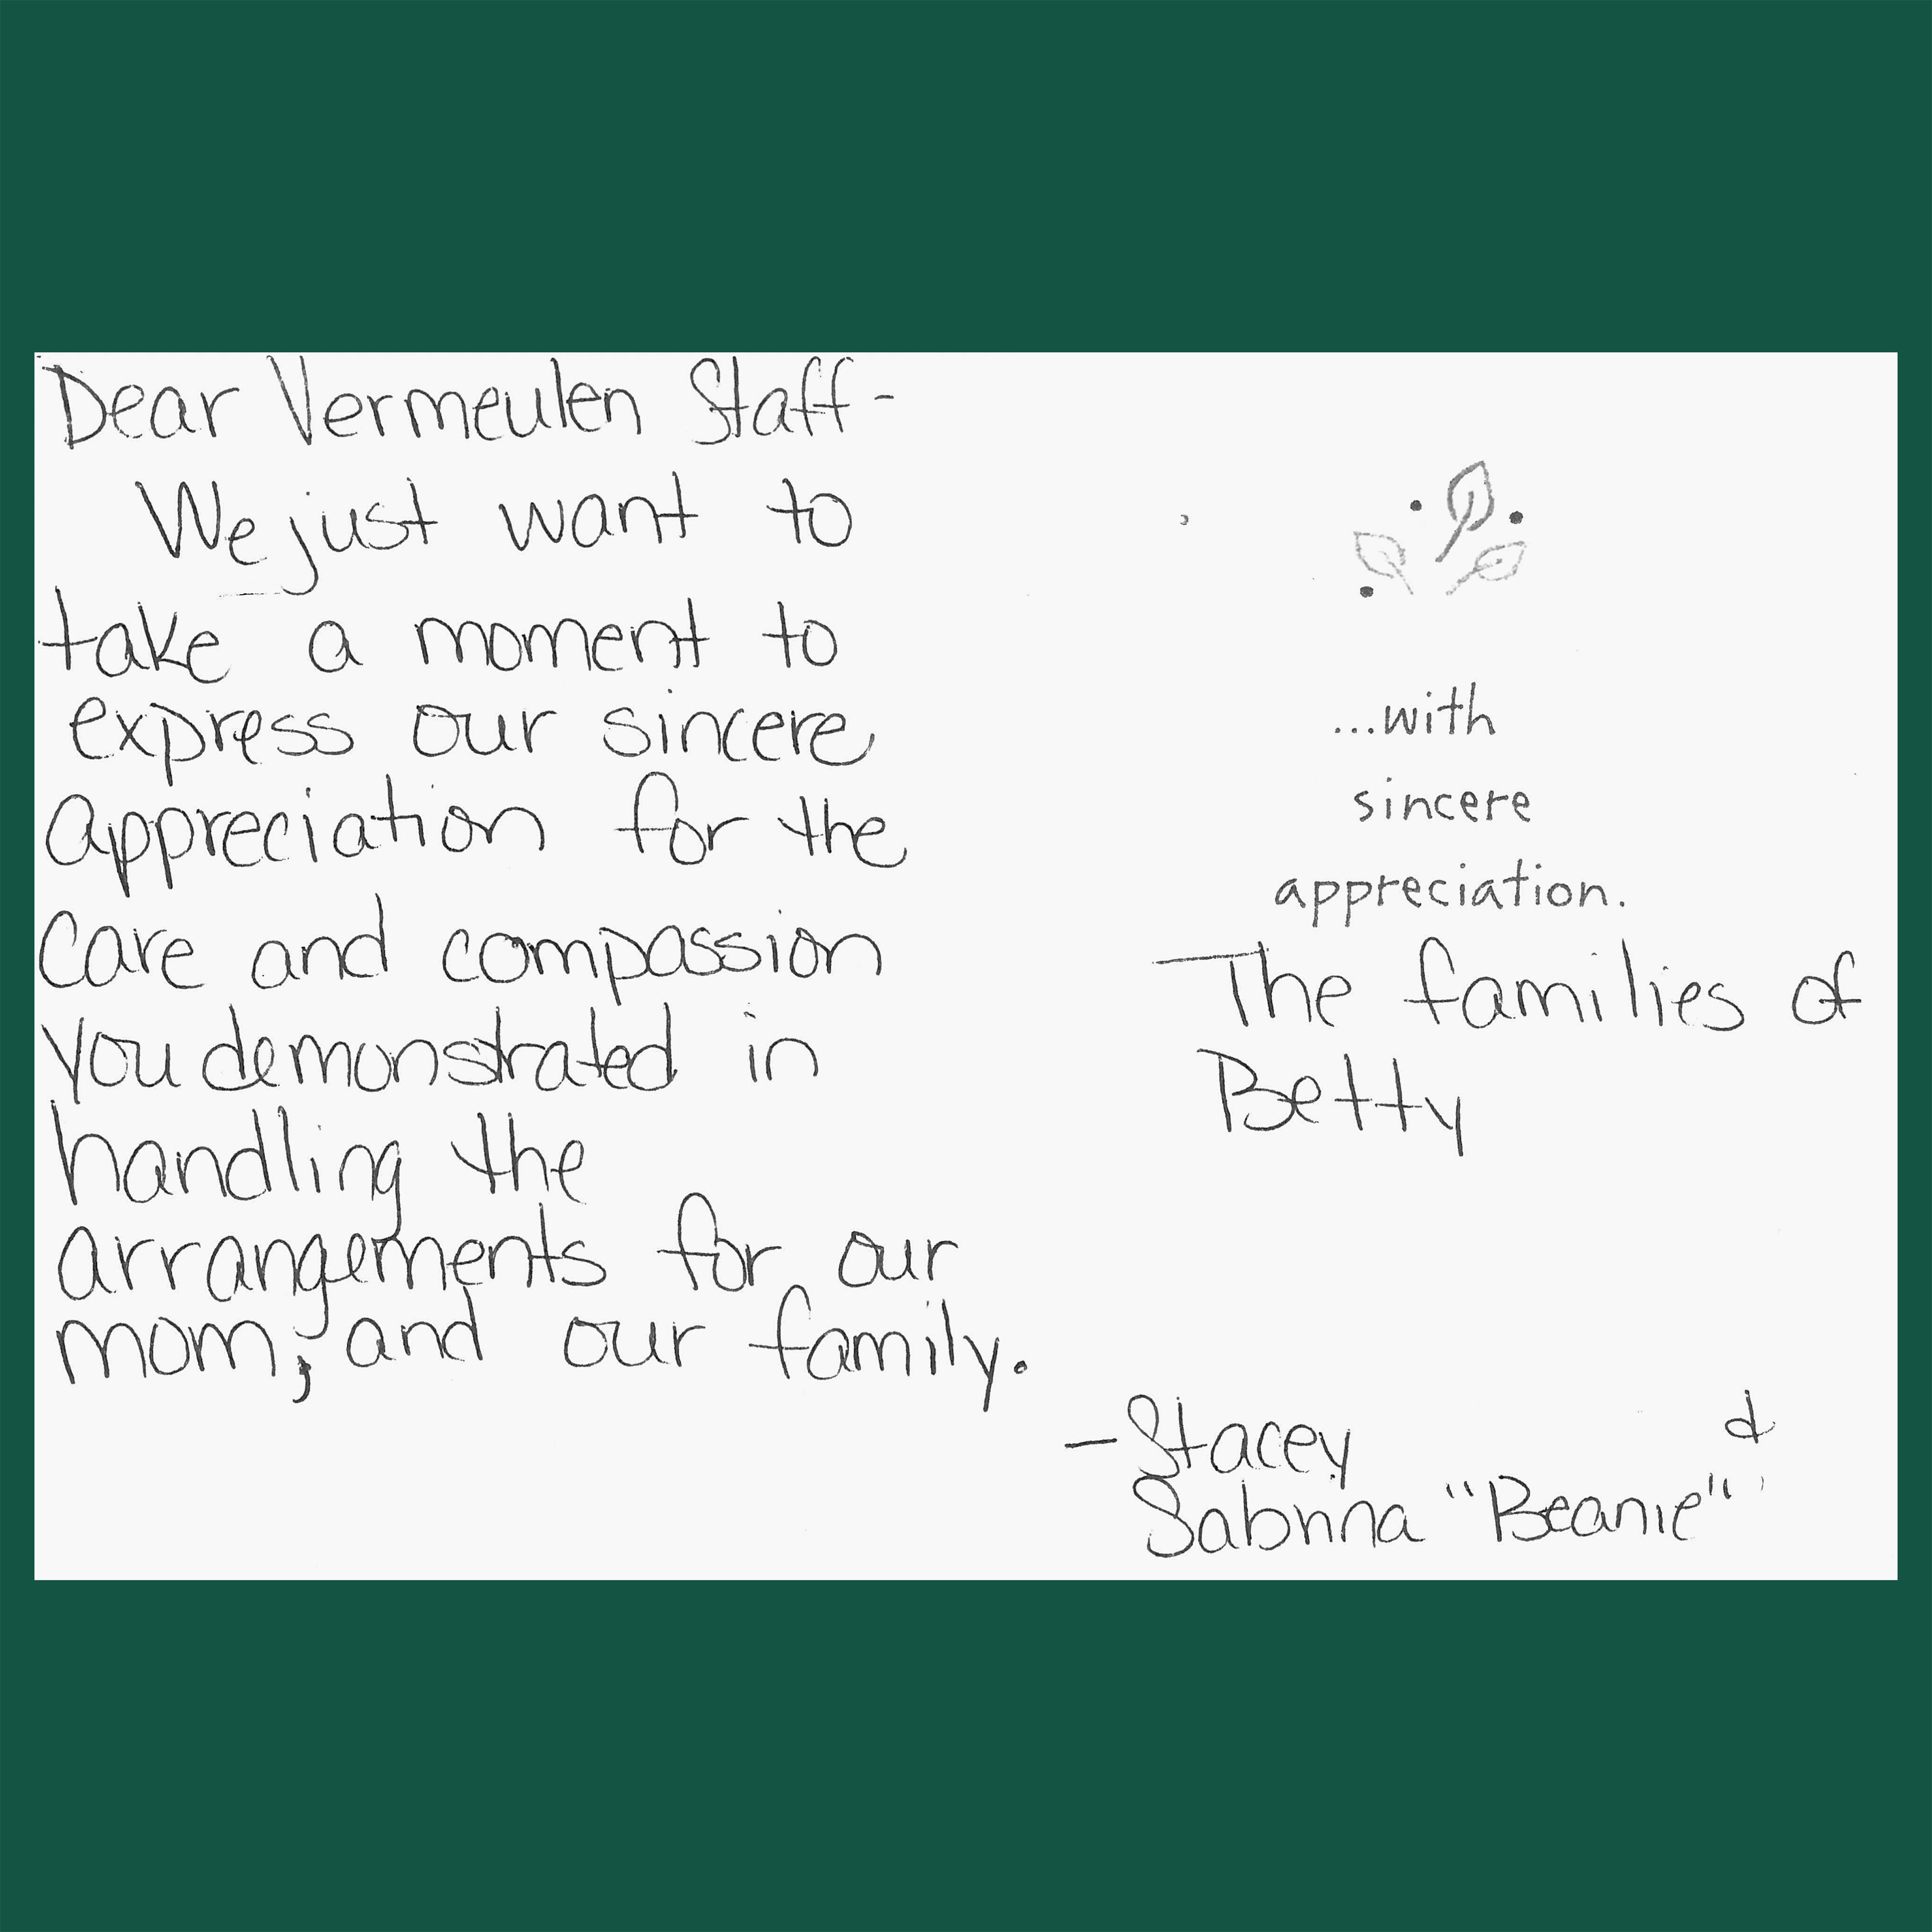 Dear Vermeulen Staff-
We just want to
take a moment to
express our sincere
appreciation for the
care and compassion
you demonstrated in
handling the
arrangements for our
mom, and our family.
...with
sincere
appreciation.
The families of
Betty
-Stacey &
Sabrina "Beanie"